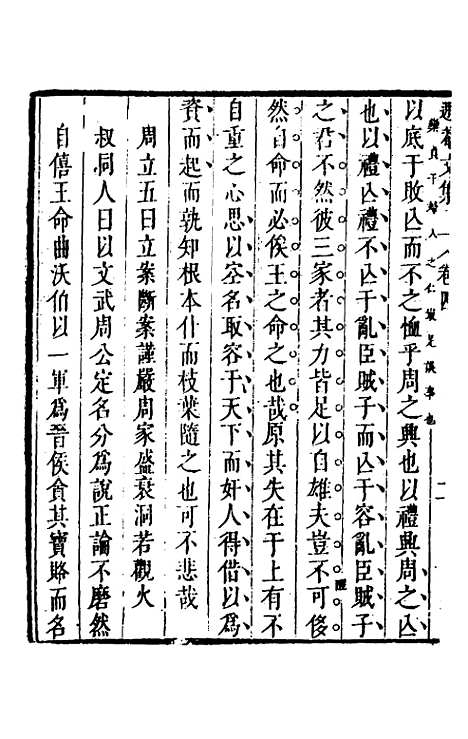 文集 卷四
以底于敗亾而不之恤乎周之興也以禮興周之亾
也以禮亾禮不亾于亂臣賊子而亾于容亂臣賊子
之君不然彼三家者其力皆足以自雄夫豈不可俊
然自命而必俟王之命之也哉原其失在于上有不
自重之心思以空名取容于天下而奸人得借以爲
資而起而孰知根本什而枝葉隨之也可不悲哉
周立五曰立案斷案謹嚴周家盛衰洞若觀火
叔洞人曰以文武周公定名分爲說正論不磨然
自僖王命曲沃伯以一軍爲晉侯貪其寶賂而名